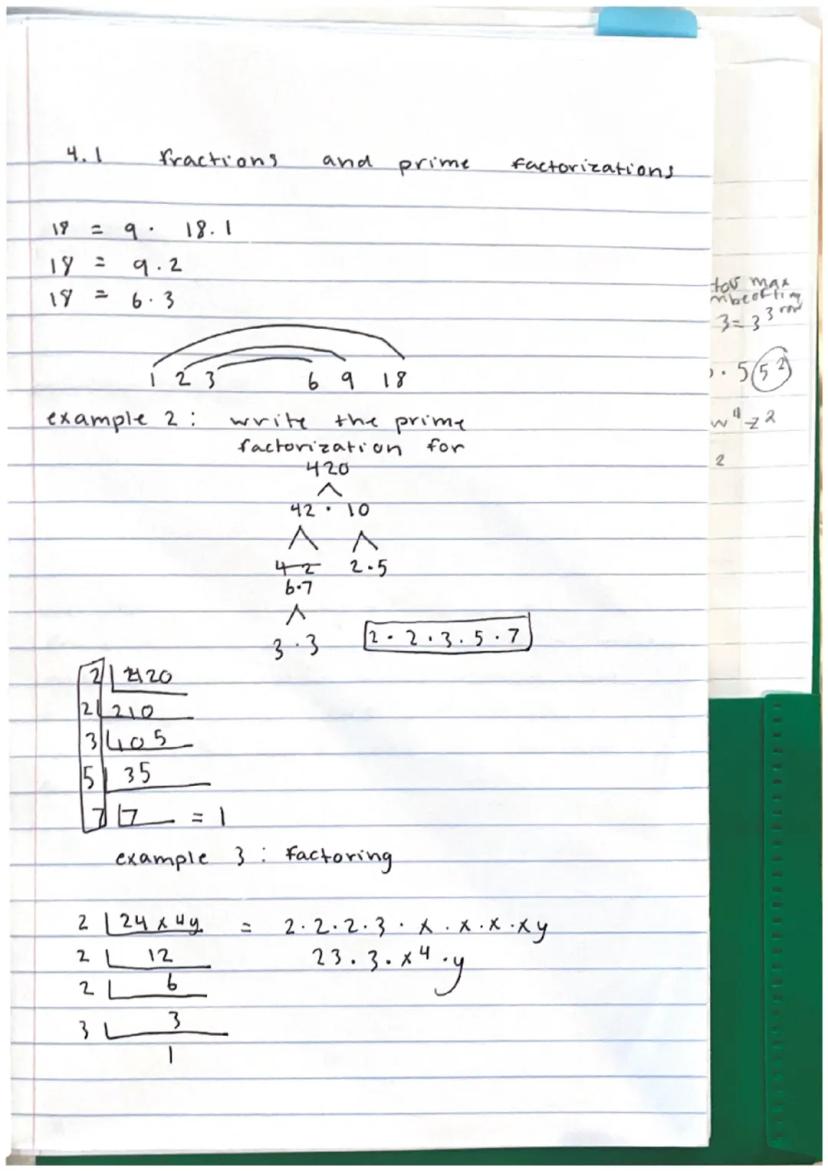 4.1 fractions and prime factorizations
18 = 9 · 18.1
18 = 9.2
18 = 6.3
1 2 3 6 9 18
example 2: write the prime
factorization for
420
42 · 10
4 2 2.5
6.7
3.3 2 · 2 · 3 . 5 . 7
2 420
2 210
3 105
5 35
7 7 = 1
example 3 : factoring
2 24 x 4y = 2.2.2.3 · x . x . x . xy
2 12 23.3.x4.y
2 6
3 3
1
max
3 = 3 3
. 5 5 2
w 4 z 2
2